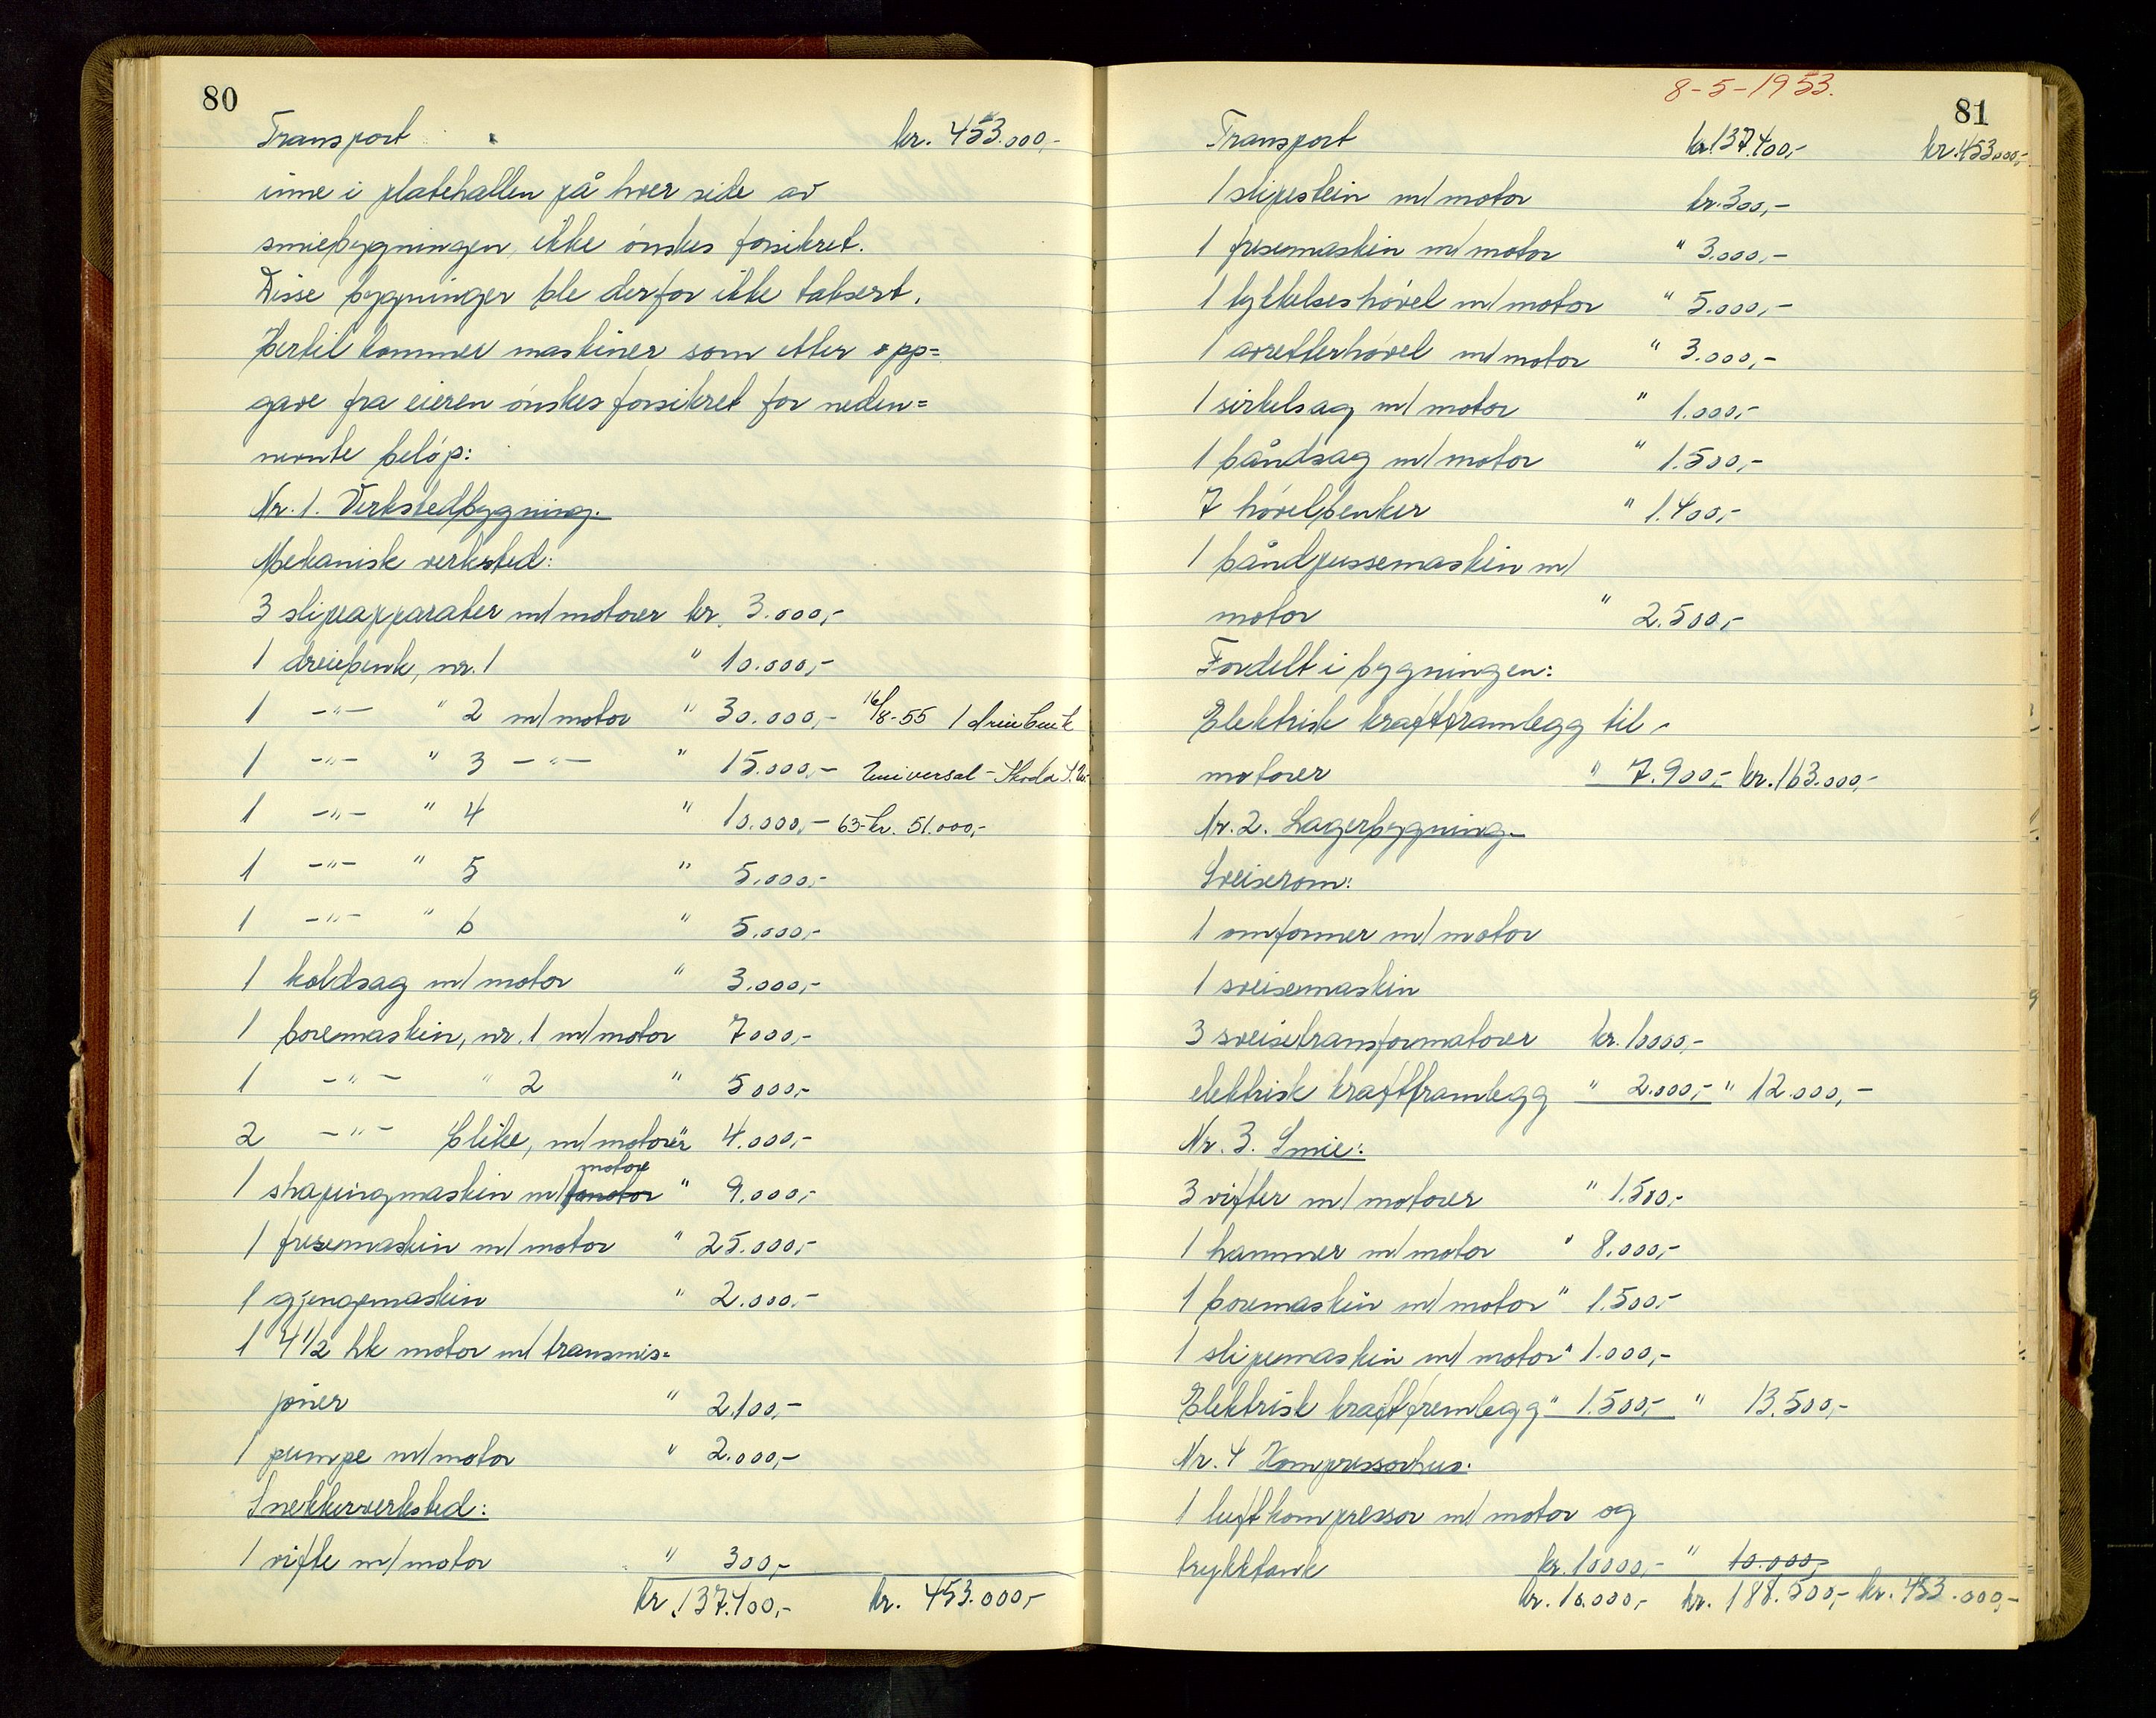 80
Transport kr. 453.000,-
inne i platehallen på hver side av
smiebygningen, ikke ønskes forsikret.
Disse bygninger ble derfor ikke taksert.
Hertil kommer maskiner som etter opp=
gave fra eieren ønskes forsikret for neden=
nevnte beløp:
Nr. 1. Verkstedbygning.
Mekanisk verksted:
3 slipeapparater m/motorer kr. 3.000,-
1 dreiebenk, nr. 1 " 10.000,-
1 -"- " 2 m/motor " 30.000,- 16/8-55 1 dreiebenk
1 -"- " 3 -"- " 15.000,- Universal - Skoda S.U-
1 -"- " 4 " 10.000,- 63-kr. 51.000,-
1 -"- " 5 " 5.000,-
1 -"- " 6 " 5.000,-
1 koldsag m/motor " 3.000,-
1 boremaskin, nr. 1 m/motor 7000,-
1 -"- " 2 " 5000,-
2 -"- like, m/motorer " 4.000,-
1 shapingmaskin m/ motor " 9.000,-
1 fresemaskin m/motor " 25.000,-
1 gjengemaskin " 2.000,-
1 4 1/2 hk motor m/transmis=
joner " 2.100,-
1 pumpe m/motor " 2.000,-
Snekkerverksted:
1 vifte m/motor " 300,-
kr. 137.400,- kr. 453.000,-
8-5-1953.
81
Transport kr. 137.400,- kr. 453.000,-
1 slipestein m/motor kr. 300,-
1 fresemaskin m/motor " 3.000,-
1 tykkelseshøvel m/motor " 5.000,-
1 avretterhøvel m/motor " 3.000,-
1 sirkelsag m/motor " 1.000,-
1 båndsag m/motor " 1.500,-
7 høvelbenker " 1.400,-
1 båndpussemaskin m/
motor " 2.500,-
Fordelt i bygningen:
Elektrisk kraftframlegg til
motorer " 7.900,- kr. 163.000,-
Nr. 2. Lagerbygning.
Sveiserom:
1 omformer m/motor
1 sveisemaskin
3 sveisetransformatorer kr. 10000,-
elektrisk kraftframlegg " 2.000,- " 12.000,-
Nr. 3. Smie:
3 vifter m/motorer " 1.500,-
1 hammer m/motor " 8.000,-
1 boremaskin m/motor " 1.500,-
1 slipemaskin m/motor " 1.000,-
Elektrisk kraftfremlegg " 1.500,- " 13.500,-
Nr. 4 Kompressorhus.
1 luftkompressor m/motor og
trykktank kr. 10000,- " 10.000,-
kr. 10.000,- kr. 188.500,- kr. 453.000,-